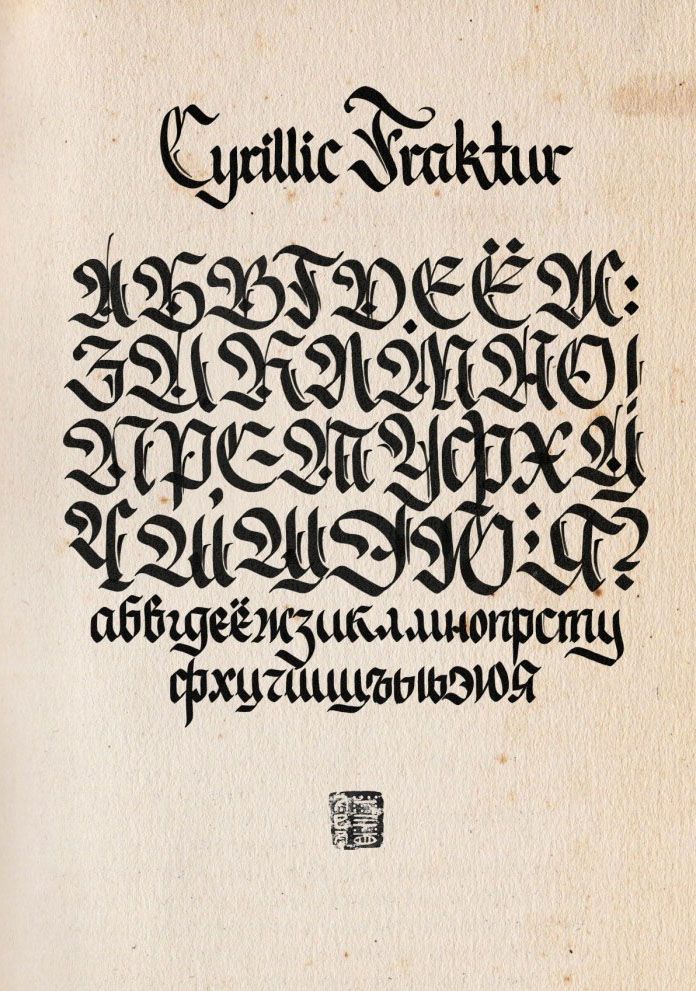 Cyrillic Fraktur
АБВГДЕЁЖ:
ЗИКЛМНО!
ПРСТУФХЦ
ЧШЩЭЮ:Я?
абвгдеёжзиклмнопрсту
фхцчшщъыьэюя